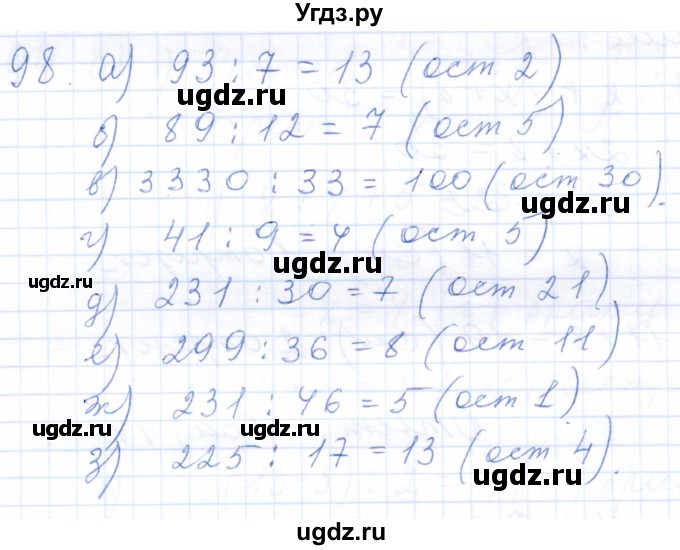 Угдз.ру
98. а) 93 : 7 = 13 (ост 2)
ugdz.ru
б) 89 : 12 = 7 (ост 5)
ugdz.ru
в) 3330 : 33 = 100 (ост 30).
ugdz.ru
г) 41 : 9 = 4 (ост 5)
ugdz.ru
ugdz.ru
д) 231 : 30 = 7 (ост 21)
ugdz.ru
е) 299 : 36 = 8 (ост 11)
ж) 231 : 46 = 5 (ост 1)
ugdz.ru ugdz.ru ugdz.ru
з) 225 : 17 = 13 (ост 4).
ugdz.ru